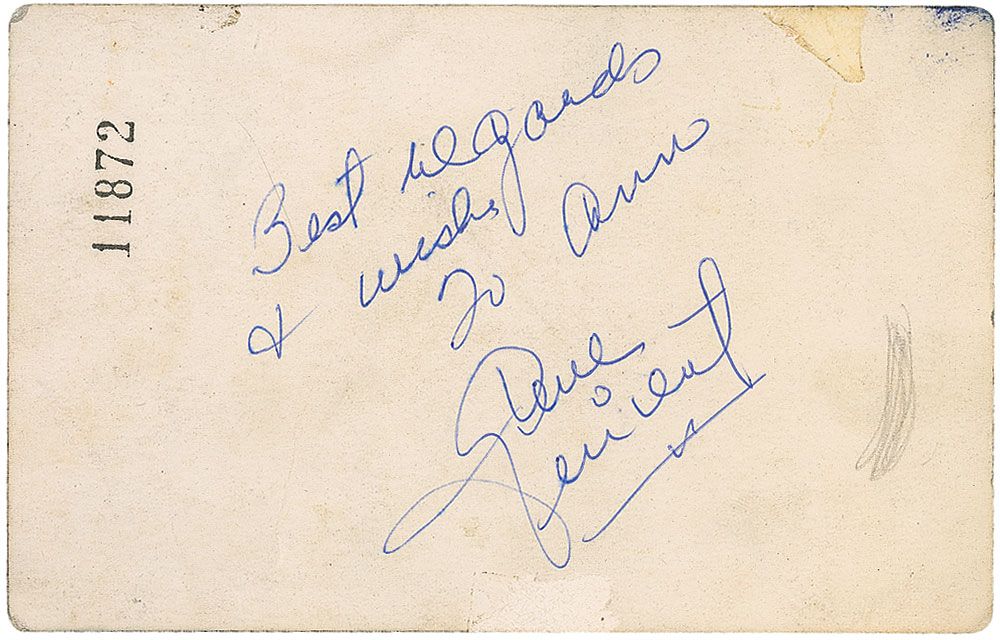 11872
Best regards
& wishes
To Ann
Gene
Vincent
x